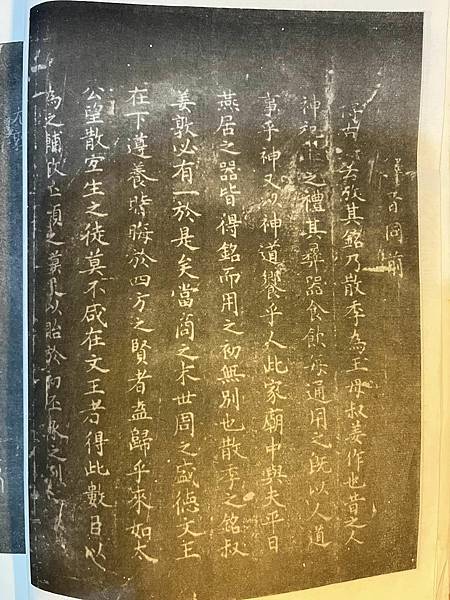 蓋音同前
右攷其銘乃散季為王母叔姜作也昔之人
神之禮其彝器食飲每通用之既以人道
事乎神又以神道饗乎人此家廟中與夫平日
燕居之器皆得銘而用之初無別也散季之銘叔
姜敦必有一於是矣當商之末世周之盛德文王
在下遵養時晦於四方之賢者盍歸乎來如太
公望散宜生之徒莫不咸在文王者得此數臣以
為之輔故丕顯之謨以貽於丕承之烈